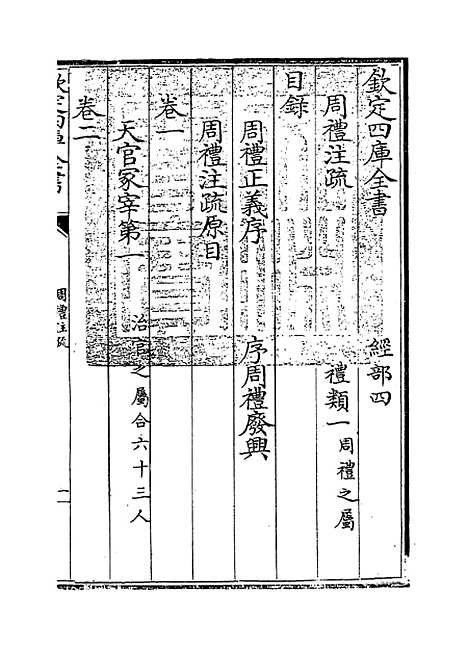 欽定四庫全書 經部四
周禮注疏 禮類一 周禮之屬
目錄
周禮正義序 序周禮廢興
周禮注疏原目
卷一
天官冢宰第一 治官之屬合六十三人
卷二
欽定四庫全書 周禮注疏 一